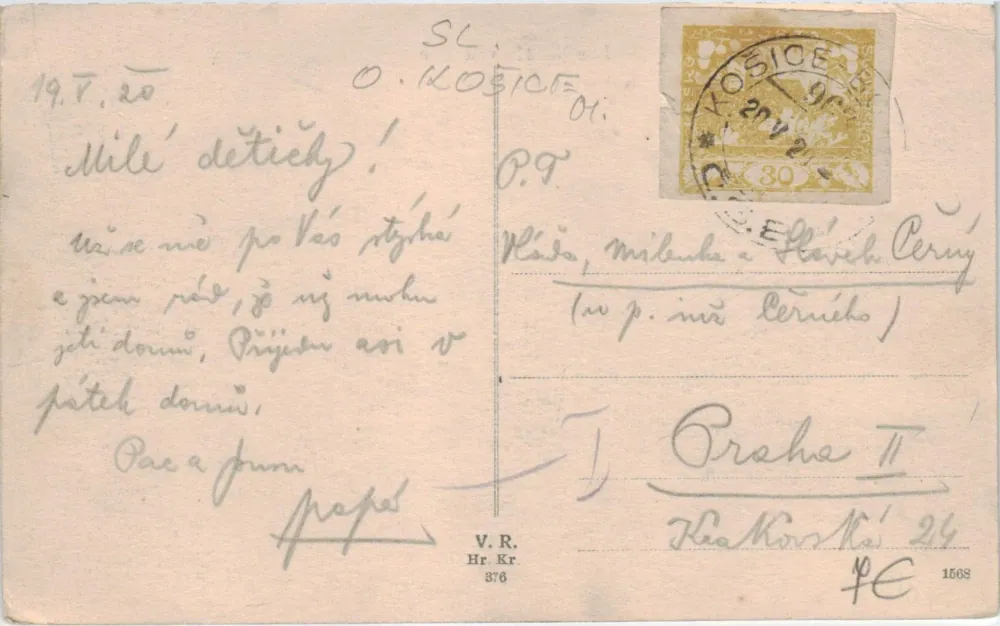 SL.
O. KOŠICE
01.
19.V.20
Milé dětičky!
Už se mě po Vás stýská
a jsem rád, že už mohu
jeti domů. Přijedu asi v
pátek domů.
Pac a
papá
KOŠICE
20 V 20
30
P.T.
Vláďa, Milenka a Slávek Černý
(u p. inž Černého)
Praha II
Krakovská 24
7€
V. R.
Hr. Kr.
376
1568